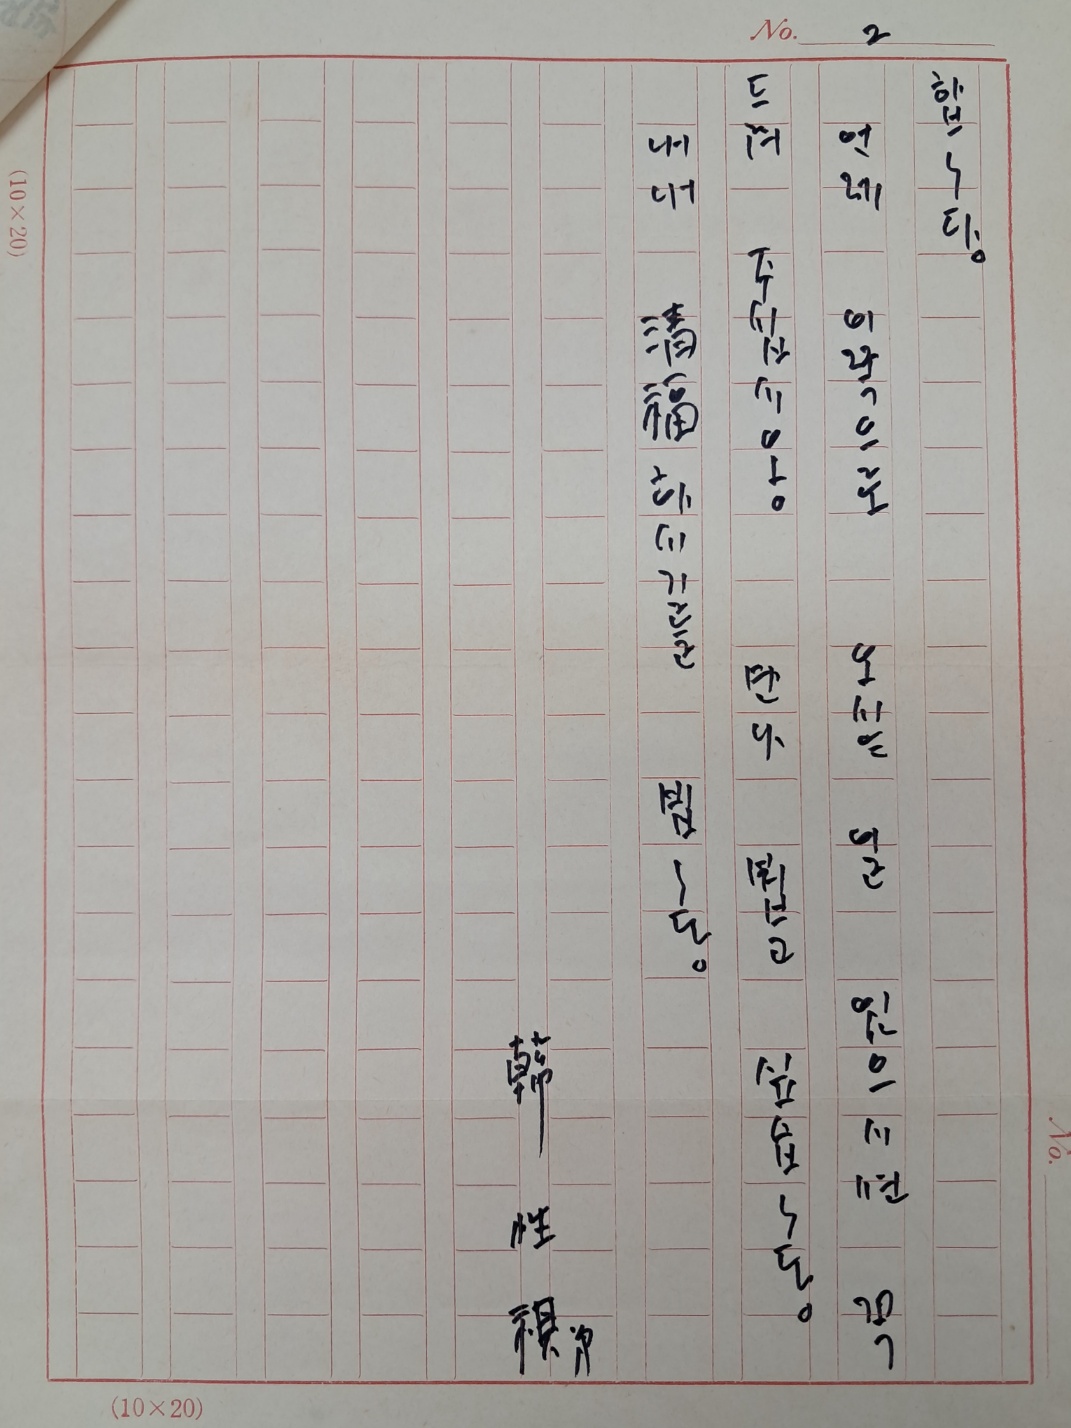 No. 2
합니다.
언제 이락으로 오시는 일 있으시면 꼭
드려 주십시오. 만나 뵙고 싶습니다.
내내 淸福하시기를 빕니다.
韓 性 祺
(10×20)
(10×20)
No.